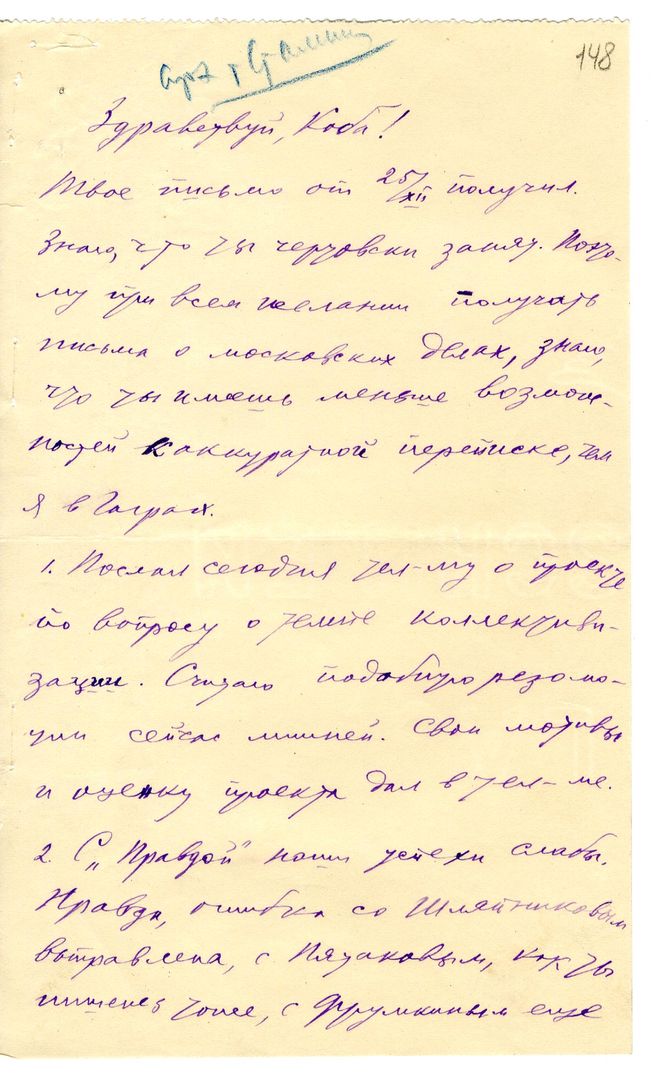 арх т Сталин
148
Здравствуй, Коба!
Твое письмо от 25/XII получил.
Знаю, что ты чертовски занят. Поэто-
му при всем желании получать
письма о московских делах, знаю,
что ты имеешь меньше возмож-
ностей к аккуратной переписке, чем
я в Гаграх.
1. Послал сегодня тел-му о проекте
по вопросу о темпе коллективи-
зации. Считаю подобную резолю-
цию сейчас лишней. Свои мотивы
и оценку проекта дал в тел-ме.
2. С „Правдой" наши успехи слабы.
Правда, ошибка со Шляпниковым
выправлена, с Пятаковым, как ты
пишешь тоже, с Фрумкиным еще